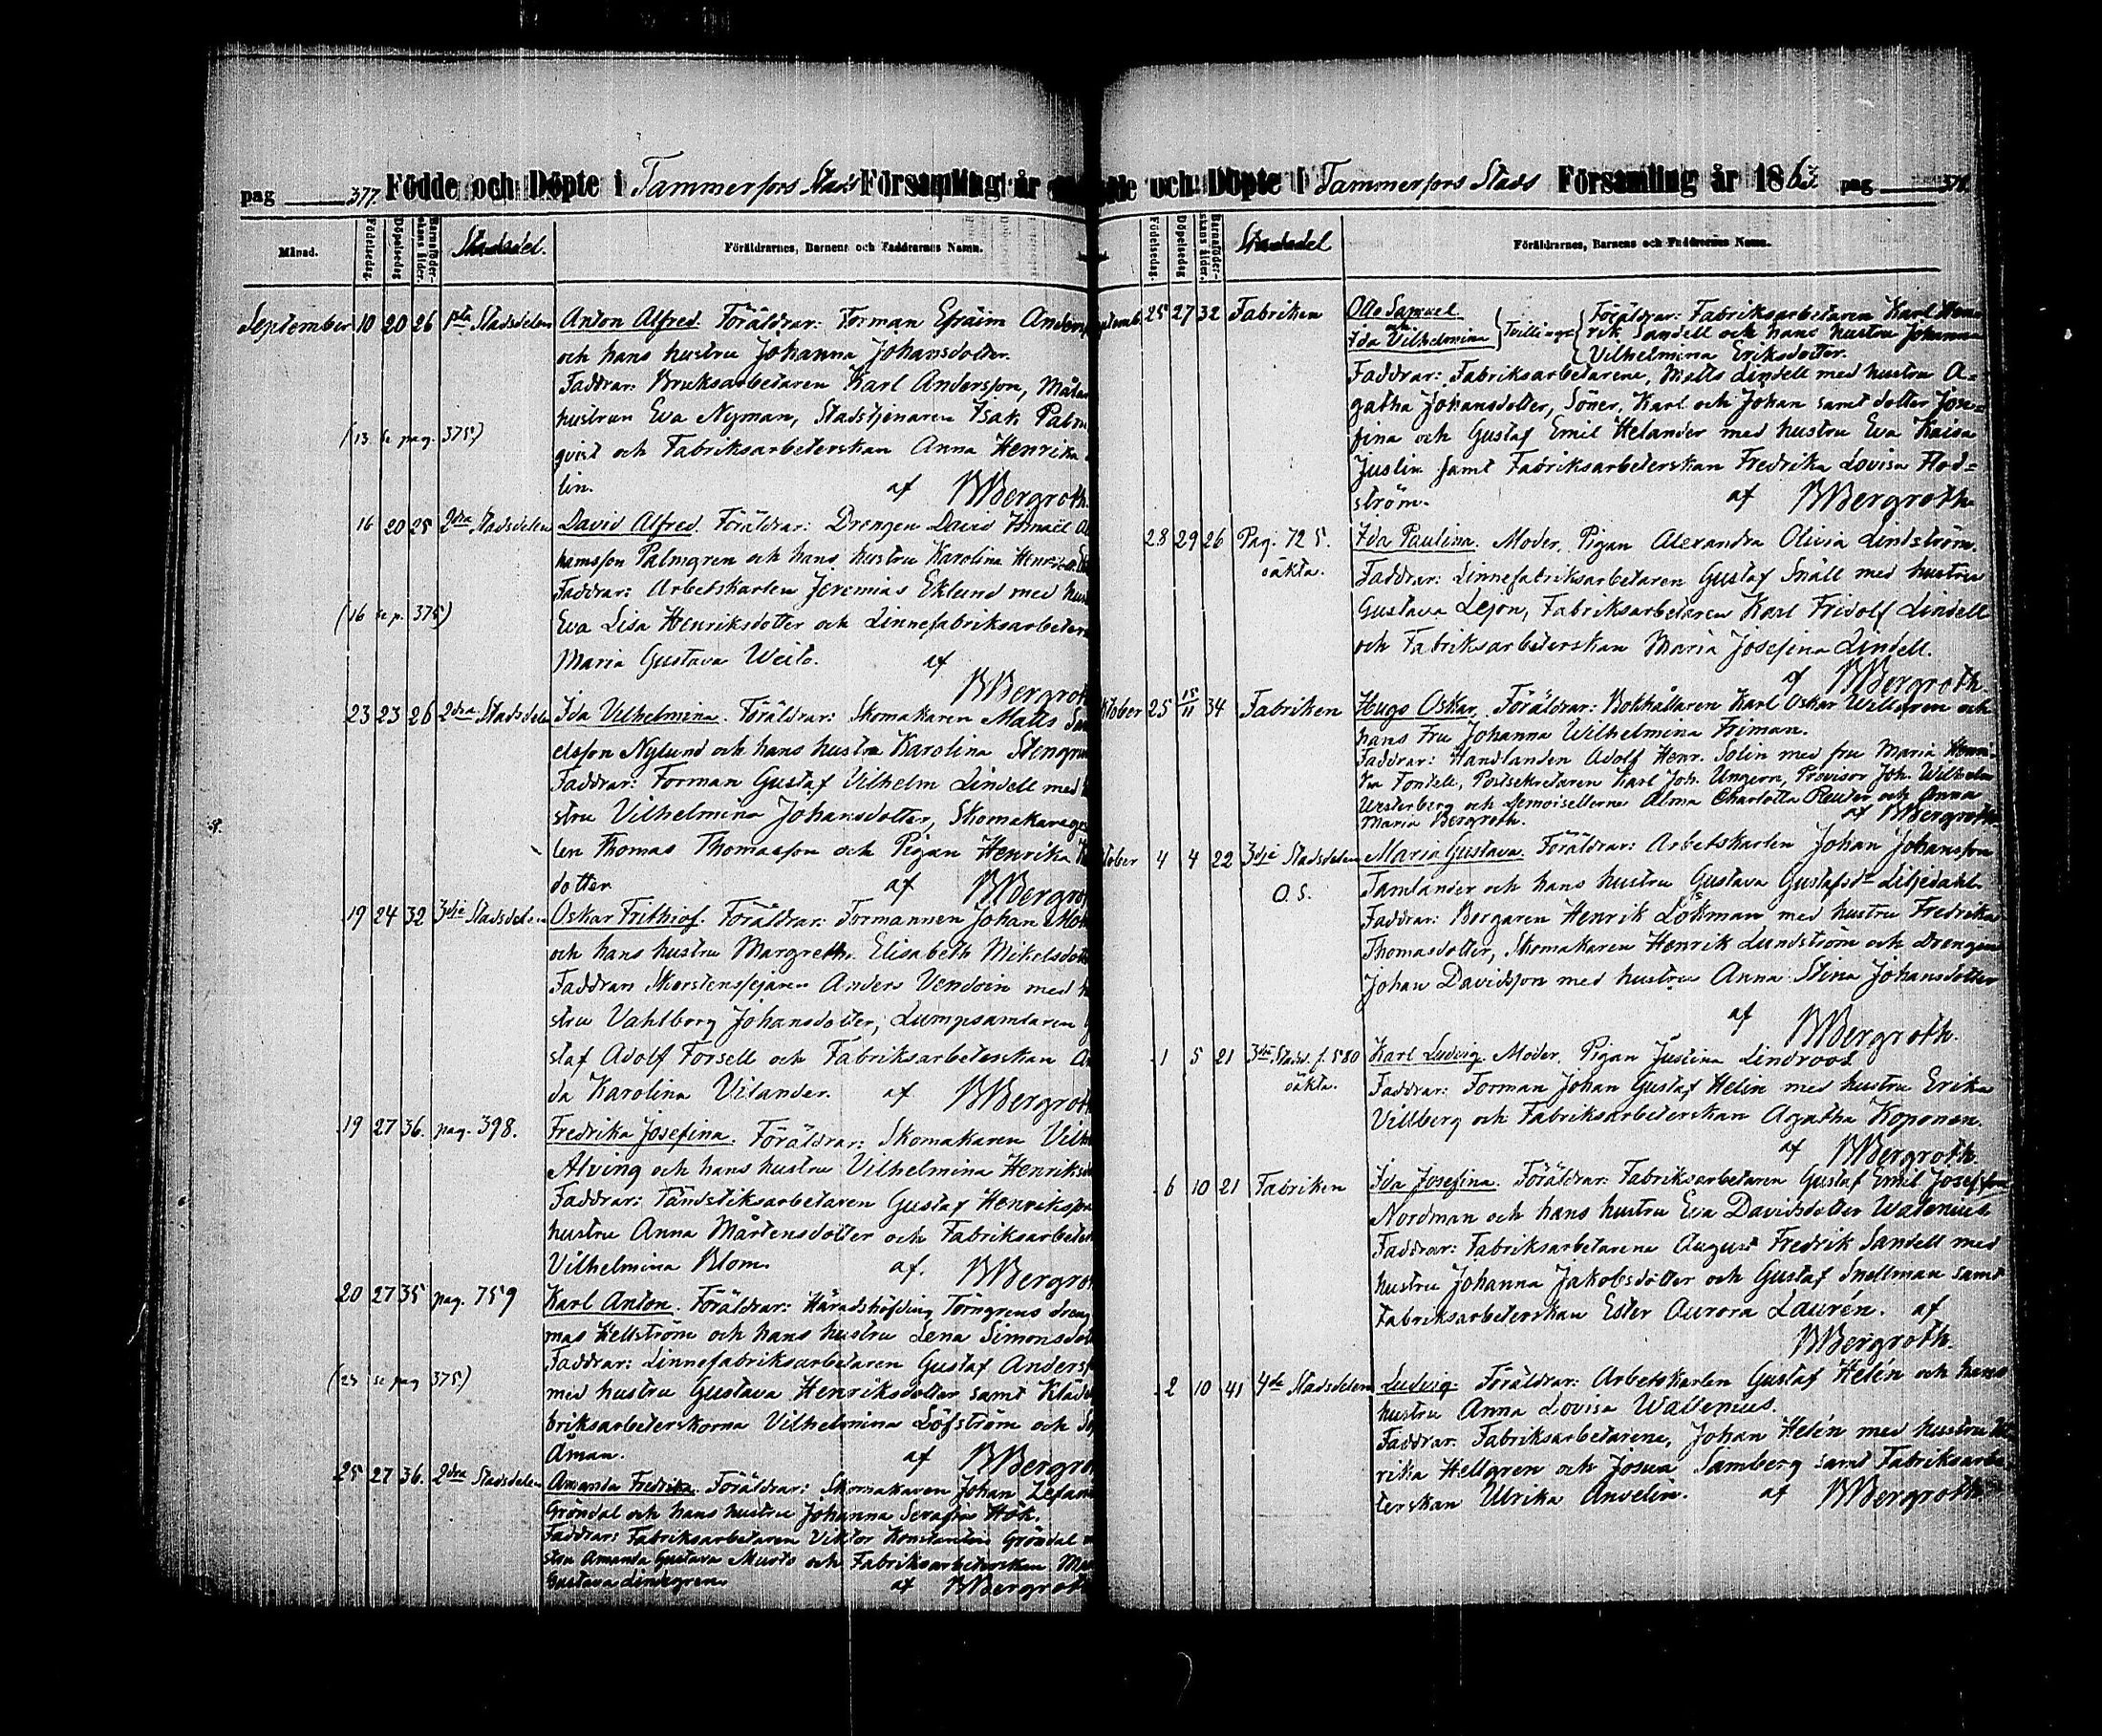 pag 377. Födde och Döpte i Tammerfors Stads Församling år
Månad. Födelsedag. Döpelsedag Barnaföderskans ålder. Stadsdel. Föräldrarnes, Barnens och Faddrarnes Namn.
September 10 20 26 1sta Stadsdelen Anton Alfred. Föräldrar: Forman Efraim Anders
och hans hustru Johanna Johansdotter.
Faddrar: Bruksarbetaren Karl Andersson, Måla
hustrun Eva Nyman, Stadstjenaren Isak Palm
(13 se pag. 375.)
qvist och Fabriksarbeterskan Anna Henrika
lin. af BBergroth.
16 20 25 2dra Stadsdelen David Alfred. Föräldrar: Drengen David Ismaël A
hamsson Palmgren och hans hustru Karolina Henr:dotter
Faddrar: Arbetskarlen Jeremias Eklund med hus
(16 se p. 375)
Eva Lisa Henriksdotter och Linnefabriksarbeter
Maria Gustava Weito. af
BBergroth
23 23 26 2dra Stadsdelen Ida Vilhelmina. Föräldrar: Skomakaren Matts Sam
elsson Nylund och hans hustru Karolina Stengru
Faddrar: Forman Gustaf Vilhelm Lindell med
stru Vilhelmina Johansdotter, Skomakarege
len Thomas Thomasson och Pigan Henrika
dotter af BBergroth
19 24 32 3dje Stadsdelen Oskar Frithiof. Föräldrar: Formannen Johan
och hans hustru Margretha Elisabeth Mikelsdott
Faddrar: Skorstensfejaren Anders Vendoin med h
stru Vahlborg Johansdotter, Lumpsamlaren
staf Adolf Forsell och Fabriksarbeterskan
da Karolina Vilander. af BBergroth
19 27 36. pag. 398. Fredrika Josefina. Föräldrar: Skomakaren Vilh
Alving och hans hustru Vilhelmina Henriksd
Faddrar: Tändstiksarbetaren Gustaf Henriksson
hustru Anna Mårtensdotter och Fabriksarbeter
Vilhelmina Blom. af. BBergroth
20 27 35 pag. 759 Karl Anton. Föräldrar: Häradshöfding Törngrens dreng
mas Hellström och hans hustru Lena Simonsdott
Faddrar: Linnefabriksarbetaren Gustaf Anderss
(23 se pag 375)
med hustru Gustava Henriksdotter samt Kläde
briksarbeterskorna Vilhelmina Löfström och
Åman. af BBergroth
25 27 36. 2dra Stadsdelen Amanda Fredrika. Föräldrar: Skomakaren Johan Zefani
Gröndal och hans hustru Johanna Serafia Hök.
Faddrar: Fabriksarbetaren Viktor Konstantin Gröndal
stru Amanda Gustava Musto och Fabriksarbeterskan
Gustava Lindegren. af BBergroth
och Döpte i Tammerfors Stads Församling år 1863 pag 378.
Födelsedag. Döpelsedag Barnaföderskans ålder. Stadsdel Föräldrarnes, Barnens och Faddrarnes Namn.
ptemb. 25 27 32 Fabriken Otto Samuel
och
Ida Vilhelmina Tvillingar Föräldrar: Fabriksarbetaren Karl Hen
rik Sandell och hans hustru Johanna
Vilhelmina Eriksdotter.
Faddrar: Fabriksarbetarene, Matts Lindell med hustru A=
gatha Johansdotter, Söner, Karl och Johan samt dotter Jose=
fina och Gustaf Emil Helander med hustru Eva Kaisa
Juslin samt Fabriksarbeterskan Fredrika Lovisa Flod=
ström. af BBergroth
28 29 26 Pag. 725. Ida Paulina. Moder, Pigan Alexandra Olivia Lindström.
oäkta. Faddrar: Linnefabriksarbetaren Gustaf Snäll med hustru
Gustava Lejon, Fabriksarbetaren Karl Fridolf Lindell
och Fabriksarbeterskan Maria Josefina Lindell.
af BBergroth
ktober 25 15/11 34 Fabriken Hugo Oskar. Föräldrar: Bokhållaren Karl Oskar Willgren och
hans Fru Johanna Wilhelmina Friman.
Faddrar: Handlanden Adolf Henr. Solin med fru Maria Henri=
ka Fontell, Postsekretaren Karl Joh. Ungern, Provisor Joh. Wilhelm
Westerberg och Demoisellerna Alma Charlotta Reuter och Anna
Maria Bergroth. af BBergroth
tober 4 4 22 3dje Stadsdelen Maria Gustava. Föräldrar: Arbetskarlen Johan Johansson
O.S. Tamlander och hans hustru Gustava Gustafsdr Liljedahl.
Faddrar: Borgaren Henrik Lottman med hustru Fredrika
Thomasdotter, Skomakaren Henrik Lundström och Drengen
Johan Davidsson med hustru Anna Stina Johansdotter
af BBergroth.
1 5 21 3dje Stadsd. f. 580 Karl Ludvig. Moder, Pigan Justina Lindroos
oäkta. Faddrar: Forman Johan Gustaf Helen med hustru Erika
Villberg och Fabriksarbeterskan Agatha Koponen.
af BBergroth
6 10 21 Fabriken Ida Josefina. Föräldrar: Fabriksarbetaren Gustaf Emil Josefsson
Nordman och hans hustru Eva Davidsdotter Walenius
Faddrar: Fabriksarbetarene August Fredrik Sandell med
hustru Johanna Jakobsdotter och Gustaf Snellman samt
Fabriksarbeterskan Ester Aurora Laurén. af
BBergroth.
2 10 41 4de Stadsdelen Ludvig. Föräldrar: Arbetskarlen Gustaf Helén och hans
hustru Anna Lovisa Wallenius.
Faddrar: Fabriksarbetarene, Johan Helén med hustru
rika Hellgren och Josua Samberg samt Fabriksarbe
terskan Ulrika Anvelin. af BBergroth